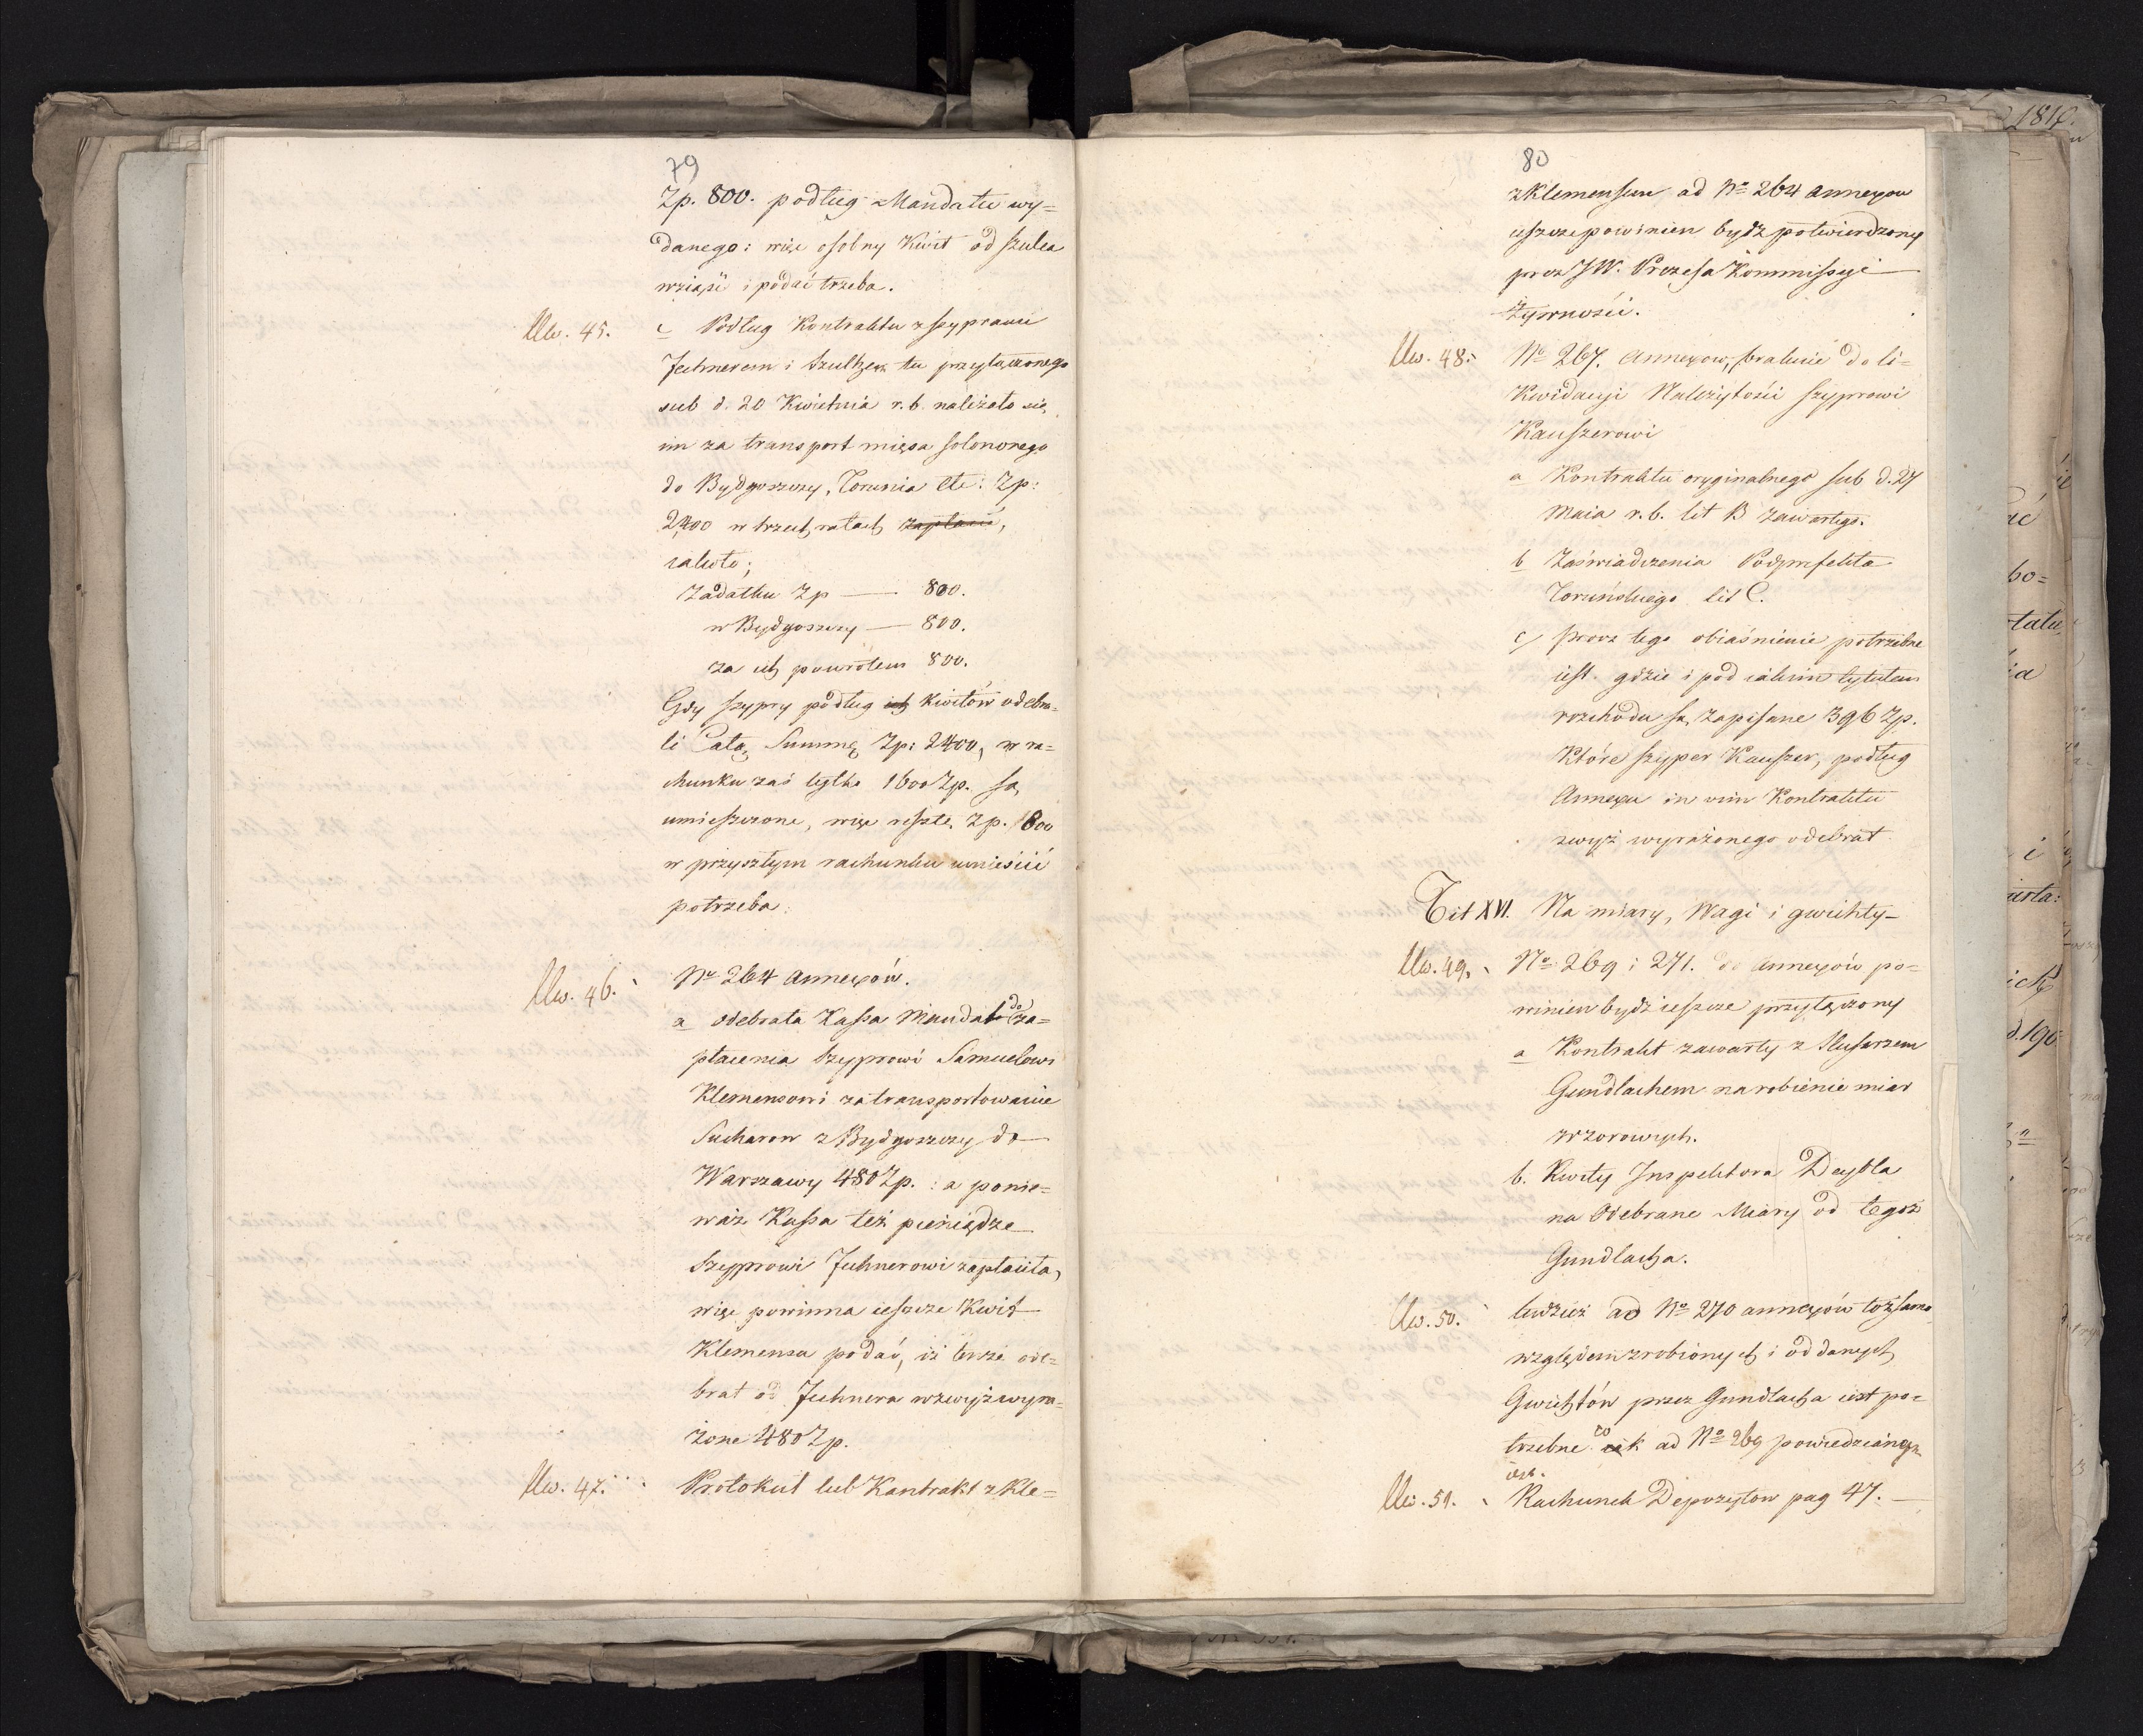 79
Zp. 800. podług Mandatu wy=
danego: więc osobny Kwit od Szulca
wziąść i podać trzeba.
Uw. 45. c Podług Kontraktu z szyprami
Jechnerem i Szultzem tu przyłączonego
sub d. 20 Kwietnia r. b. należało się
im za transport mięsa solonorego
do Bydgoszczy, Torunia etc: Zp:
2400 w trzech ratach zapłacić,
iakoto;
Zadatku Zp — 800.
w Bydgoszczy — 800.
za ich powrotem 800.
Gdy szypry podług ich kwitów odebra=
li Całą Summę Zp: 2400, w ra=
chunku zaś tylko 1600 Zp. są
umieszczone, więc resztę Zp. 800
w przyszłym rachunku umieścić
potrzeba.
Uw. 46. No 264 Annexów.
a odebrała Kassa Mandat do za=
płacenia Szyprowi Samuelowi
Klemensowi za transportowanie
Sucharow z Bydgoszczy do
Warszawy 480 Zp. : a ponie=
waż Kassa też pieniądze
Szyprowi Jechnerowi zapłaciła,
więc powinna ieszcze Kwit
Klemensa podać, iż tenże ode=
brał od Jechnera wzwyż wyra=
żone 480 Zp.
Uw. 47. Protokuł lub Kantrakt z Kle=
80
z Klemensem ad No 264 Annexow
ieszcze powinien bydź potwierdzony
przez JW. Prezesa Kommissyi
Żywności.
Uw. 48. No 267. Annexow, brakuie do li=
kwidacyi Należytości szyprowi
Kauszerowi
a Kontraktu oryginalnego sub d. 27
Maia r. b. lit B zawartego.
b Zaświadczenia Podprefekta
Toruńskiego lit C.
c prócz tego obiaśnienie potrzebne
iest. gdzie i pod iakim tytułem
rozchodu są zapisane 396 Zp.
Które szyper Kauszer, podług
Annexu in vim Kontraktu
zwyż wyrażonego odebrał
Tit XVI. Na miary, Wagi i gwichty
Uw. 49. No 269 i 271. do Annexów po=
winien bydź ieszcze przyłączony
a Kontrakt zawarty z Slusarzem
Gundlachem na robienie miar
wzorowych.
b. Kwity Inspektora Deybla
na Odebrane Miary od tegoż
Gundlacha.
Uw. 50. tudzież ad No 270 annexów toż samo
względem zrobionych i oddanych
Gwichtów przez Gundlacha iest po=
trzebne co iak ad No 269 powiedziano
iest.
Uw. 51. Rachunek Depozytow pag 47. —
1810.